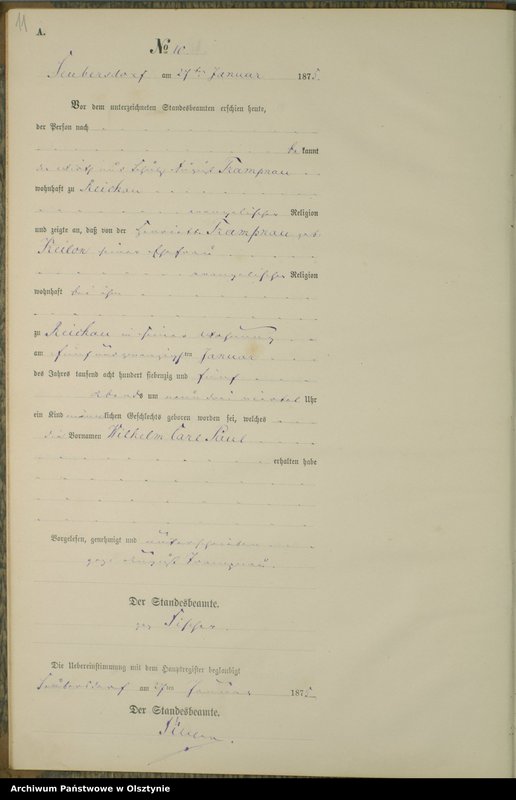 11
A.
No 10
Seubersdorf am 27ten Januar 1875.
Vor dem unterzeichneten Standesbeamten erschien heute,
der Person nach
be kannt
August Tramprau
wohnhaft zu Reichau
evangelischer Religion
und zeigte an, daß von der Henriette Tramprau geb.
seiner Ehefrau
evangelischer Religion
wohnhaft bei ihm
zu Reichau in seiner Wohnung
am fünf und zwanzigsten Januar
des Jahres tausend acht hundert siebenzig und fünf
Abends um neun drei viertel Uhr
ein Kind männlichen Geschlechts geboren worden sei, welches
die Vornamen Wilhelm Carl Paul
erhalten habe
Vorgelesen, genehmigt und unterschrieben
gez. August Tramprau.
Der Standesbeamte.
gez.
Die Uebereinstimmung mit dem Hauptregister beglaubigt
Seubersdorf am 27ten Januar 1875
Der Standesbeamte.
Archiwum Państwowe w Olsztynie